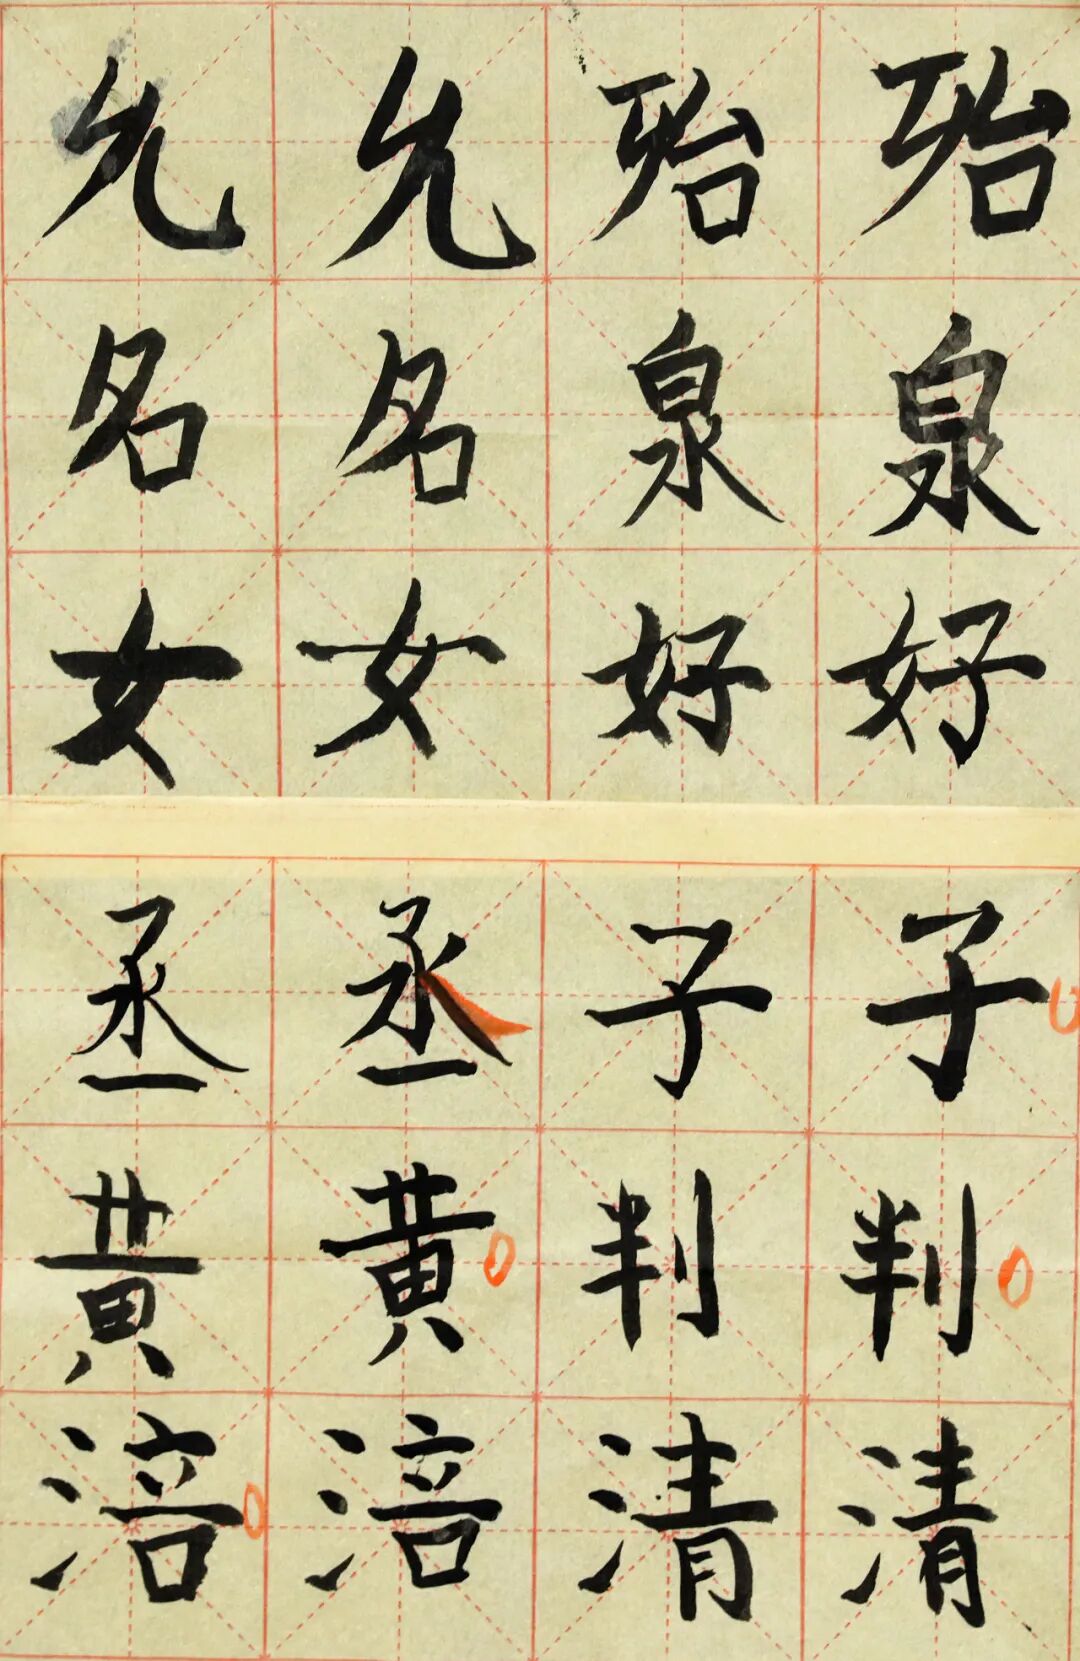 允允殆殆
名名泉泉
女女好好
丞丞子子
黄黄判判
涪涪清清